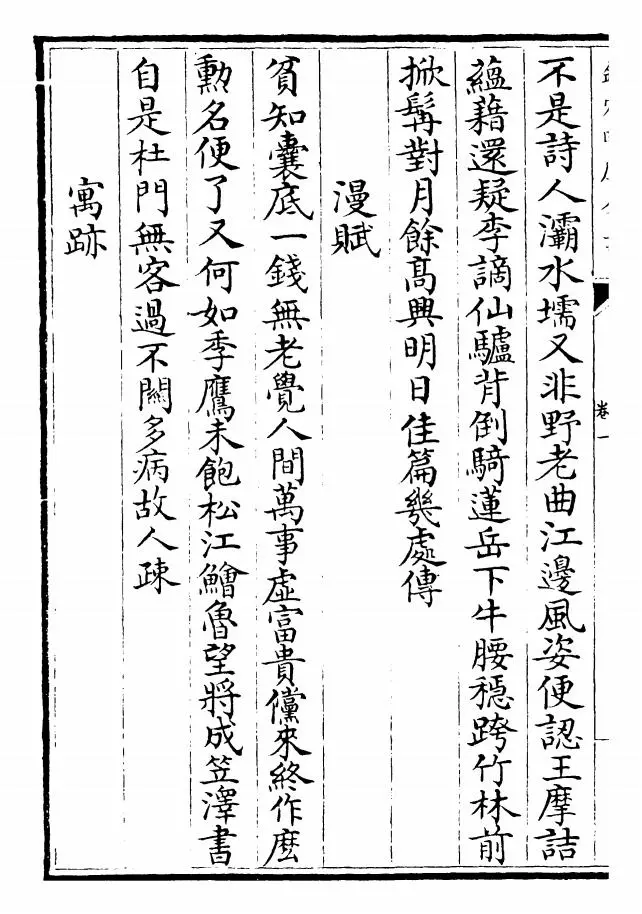 欽定四庫全書
卷一
不是詩人灞水壖又非野老曲江邊風姿便認王摩詰
蘊藉還疑李謫仙驢背倒騎蓮岳下牛腰穩跨竹林前
掀髯對月餘高興明日佳篇幾處傳
漫賦
貧知囊底一錢無老覺人間萬事虛富貴儻來終作麽
勲名便了又何如季鷹未飽松江鱠魯望將成笠澤書
自是杜門無客過不關多病故人疎
寓跡